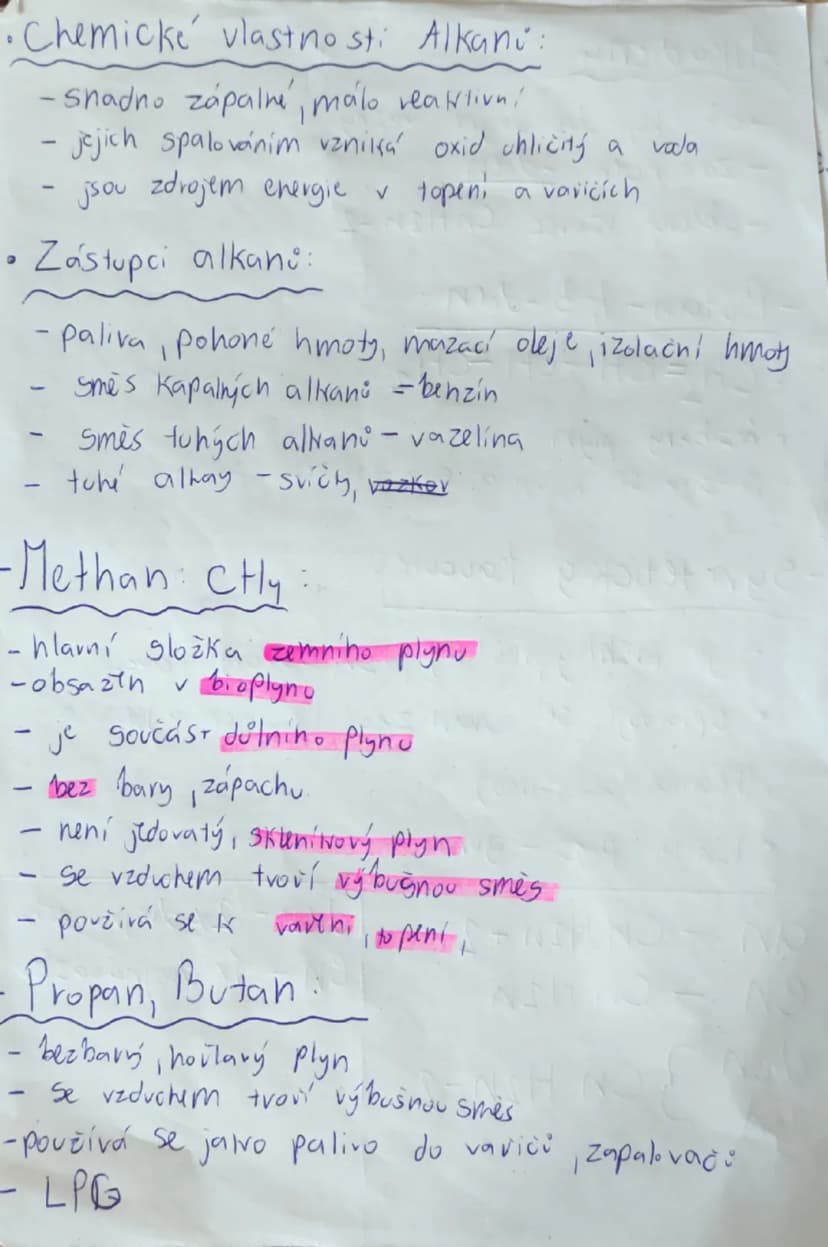 • Chemické vlastnosti Alkanů:
- snadno zápalné, málo reaktivní
- jejich spalováním vzniká oxid uhličitý a voda
- jsou zdrojem energie v topení a vařičích
• Zástupci alkanů:
- paliva, pohoné hmoty, mazací oleje, izolační hmoty
- směs kapalných alkanů = benzín
- směs tuhých alkanů - vazelína
- tuhé alkay - svíčky,
- Methan: CH4:
- hlavní složka zemního plynu
- obsažen v bioplynu
- je součást důlního plynu
- bez bary, zápachu
- není jedovatý, skleníkový plyn
- se vzduchem tvoří výbušnou směs
- používá se k vaření, topení,
- Propan, Butan:
- bezbarvý, hořlavý plyn
- se vzduchem tvoří výbušnou směs
- používá se jako palivo do vařičů, zapalovačů
- LPG